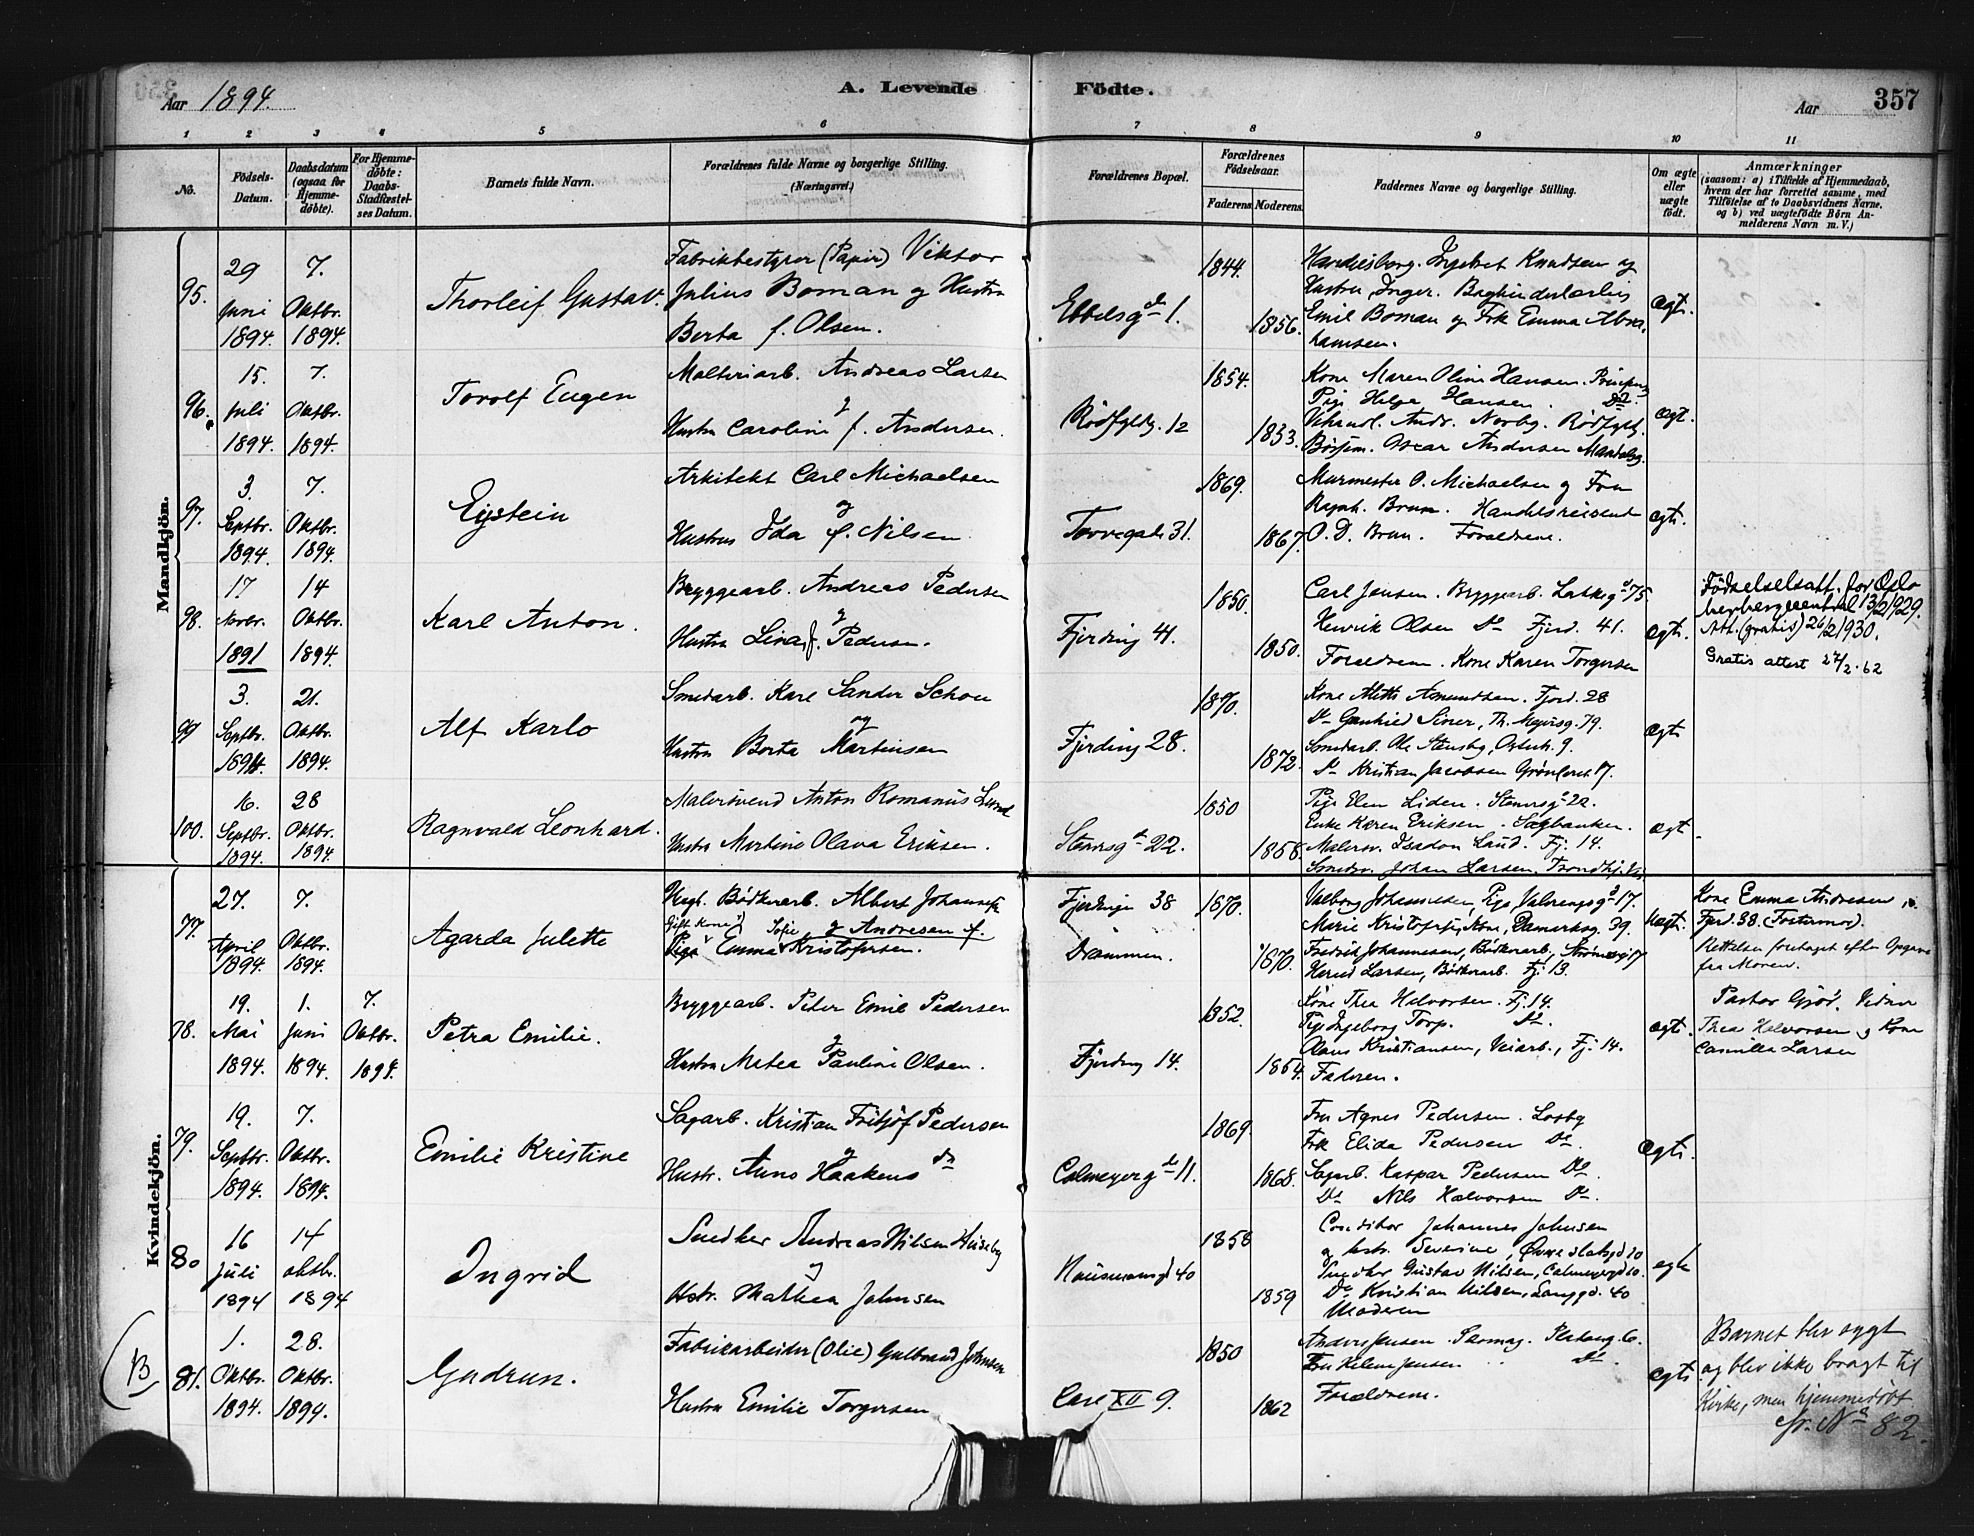 Aar 1894.
A. Levende Födte.
Aar
357
1 2 3 4 5 6 7 8 9 10 11
No.
Födsels-
Datum.
Daabsdatum
(ogsaa for
Hjemme-
döbte).
For Hjemme-
döbte:
Daabs-
Stadfæstel-
ses Datum.
Barnets fulde Navn.
Forældrenes fulde Navne og borgerlige Stilling.
(Næringsvei.)
Forældrenes Bopæl.
Forældrenes
Födselsaar.
Faderens Moderens
Faddernes Navne og borgerlige Stilling.
Om ægte
eller
uægte
födt.
Anmærkninger
(saasom: a) i Tilfælde af Hjemmedaab,
hvem der har forrettet samme, med
Tilföielse af to Daabsvidners Navne,
og b) ved uægtefödte Börn An-
melderens Navn m. V.)
Mandkjön.
95.
29
Juni
1894.
7.
Oktbr.
1894.
Thorleif Gustav.
Fabrikbestyrer (Papir) Viktor
Julius Boman og Hustru
Berta f. Olsen.
Ebbelsgde 1.
1844.
1856.
Knudsen og
Hustru Inger.
Emil Boman og Frk Emma Abra-
hamsen.
ægt.
96.
15.
Juli
1894.
7.
Oktbr.
1894.
Torolf Eugen
Malteriarb. Andreas Larsen
og
Hustru Caroline f. Andersen.
Rødfyldg. 12
1854.
1833.
Kone Maren Oline Hansen.
Pige Helga Hansen. Do.
Andr. Norby. Rødfyldg.
Oscar Andersen
ægt.
97.
3.
Septbr.
1894.
7.
Oktbr.
1894.
Eystein
Arkitekt Carl Michaelsen
og
Hustru Ida f. Nilsen
Torvegade 31.
1869.
1867.
Murmester O. Michaelsen og Fru
Ragnh. Brun. Handelsreisende
O. D. Brun. Forældrene.
ægte.
98.
17
Novbr.
1891
14
Oktbr.
1894.
Karl Anton.
Bryggearb. Andreas Pedersen
og
Hustru Lina f. Pedersen.
Fjerding 41.
1850.
1850.
Carl Jensen. Bryggearb. 75.
Henrik Olsen Do Fjerd. 41.
Forældrene. Kone Karen Torgersen
ægte.
Födselselsatt. for Oslo
herbergecentral 13/2 1929.
Att. (gratis) 26/2 1930.
Gratis attest 27/2-62
99
3.
Septbr.
1894.
21.
Oktbr.
1894.
Alf Karlo
Smedarb. Karl Sander Schou
og
Hustru Berta Martinsen
Fjerding 28.
1870.
1872.
Kone Mette Amundsen. Fjerd. 28
Th. Meyersg. 79.
Smedarb. Ole Stensby, 9.
Do Kristian Jacobsen Grønlandsl. 17.
ægte
100.
16.
Septbr.
1894.
28
Oktbr.
1894.
Ragnvald Leonhard.
Malersvend Anton Romanus Lund
Hustru Martine Olava Eriksen.
Stenersgt 22.
1850
1858.
Pige Elen Liden. Stenersg 22.
Enke Karen Eriksen. Sagbanken.
Malersv. Isadon Lund. Fj. 14.
Smedsv. Johan Larsen.
ægt.
Kvindekjön.
77.
27.
April
1894.
7.
Oktbr.
1894.
Agarda Julette
Ungk. Bødkerarb. Albert Johansen
Gift Kone Sofie og Andresen f.
Pige Emma Kristofersen.
Fjerdingen 38
Drammen.
1870.
1870.
Valborg Johannesen Pige 17.
Marie Kristofersen, Kone, Damarksg. 39.
Fredrik Johannesen, Bødkerarb. 17
Larsen, Bødkerarb. Fj. 13.
uægt.
Kone Emma Andresen,
Fjerd. 38. (Fostermor).
Rettelsen foretaget efter Opgave
fra Moren.
78.
19.
Mai
1894.
1.
Juni
1894.
7.
Oktbr.
1894.
Petra Emilie.
Bryggearb. Peter Emil Pedersen
og
Hustru Matea Pauline Olsen.
Fjerding 14.
1852.
1854.
Kone Thea Halvorsen. Fj. 14.
Pige Ingeborg Torp. Do.
Olaus Kristiansen, Veiarb., Fj. 14.
Faderen.
ægt.
Pastor
Thea Halvorsen og Kone
Camilla Larsen
79.
19.
Septbr.
1894.
7.
Oktbr.
1894.
Emilie Kristine
Sagarb. Kristian Fritjof Pedersen
og
Hustr. Anne Haakens dr
Calmeyergde 11.
1869.
1868.
Fru Agnes Pedersen. Losby
Frk Elida Pedersen Do.
Sagarb. Kaspar Pedersen Do.
Do Nils Halvorsen Do.
ægte.
80
16
Juli
1894
14
oktbr.
1894
Ingrid
Snedker Andreas Nilsen Huseby
og
Hstr. Mathea Johnsen
Hausmannsgd 40
1858
1859
Conditor Johannes Johnsen
og hstr. Severine, Øvre slotsgd 20
Snedker Gustav Nilsen, Calmeyergd 10.
Do Kristian Nilsen, Langgd. 40
Moderen
egte
(B)
81.
1.
Oktbr.
1894.
28.
Oktbr.
1894.
Gudrun.
Fabrikarbeider (Olie) Gulbrand Johnsen
Hustru Emilie Torgersen
Carl XII 9.
1850
1862
Anders Jensen. Platoug. 6.
Fru Helene Jensen " Do.
Forældrene.
ægte.
Barnet blev sygt
og blev ikke bragt til
Kirke, men hjemmedøbt
cfr. No 82.